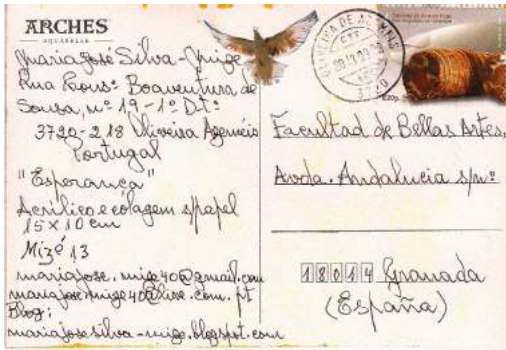 ARCHES
AQUARELLE
Maria José Silva - Mize
Rua Profs: Boaventura de
Sousa, nº 19-1º Dtº
3720-218 Oliveira Azeméis
Portugal
"Esperança"
Acrílico e colagem s/papel
15 x 10 cm
Mizé 13
mariajose.mize40@gmail.com
mariajose.mize40@live.com.pt
Blog:
mariajosesilva-mize.blogspot.com
OLIVEIRA DE AZEMEIS
CTT
3720
Facultad de Bellas Artes,
Avda. Andalucia s/nº
18014 Granada
(España)